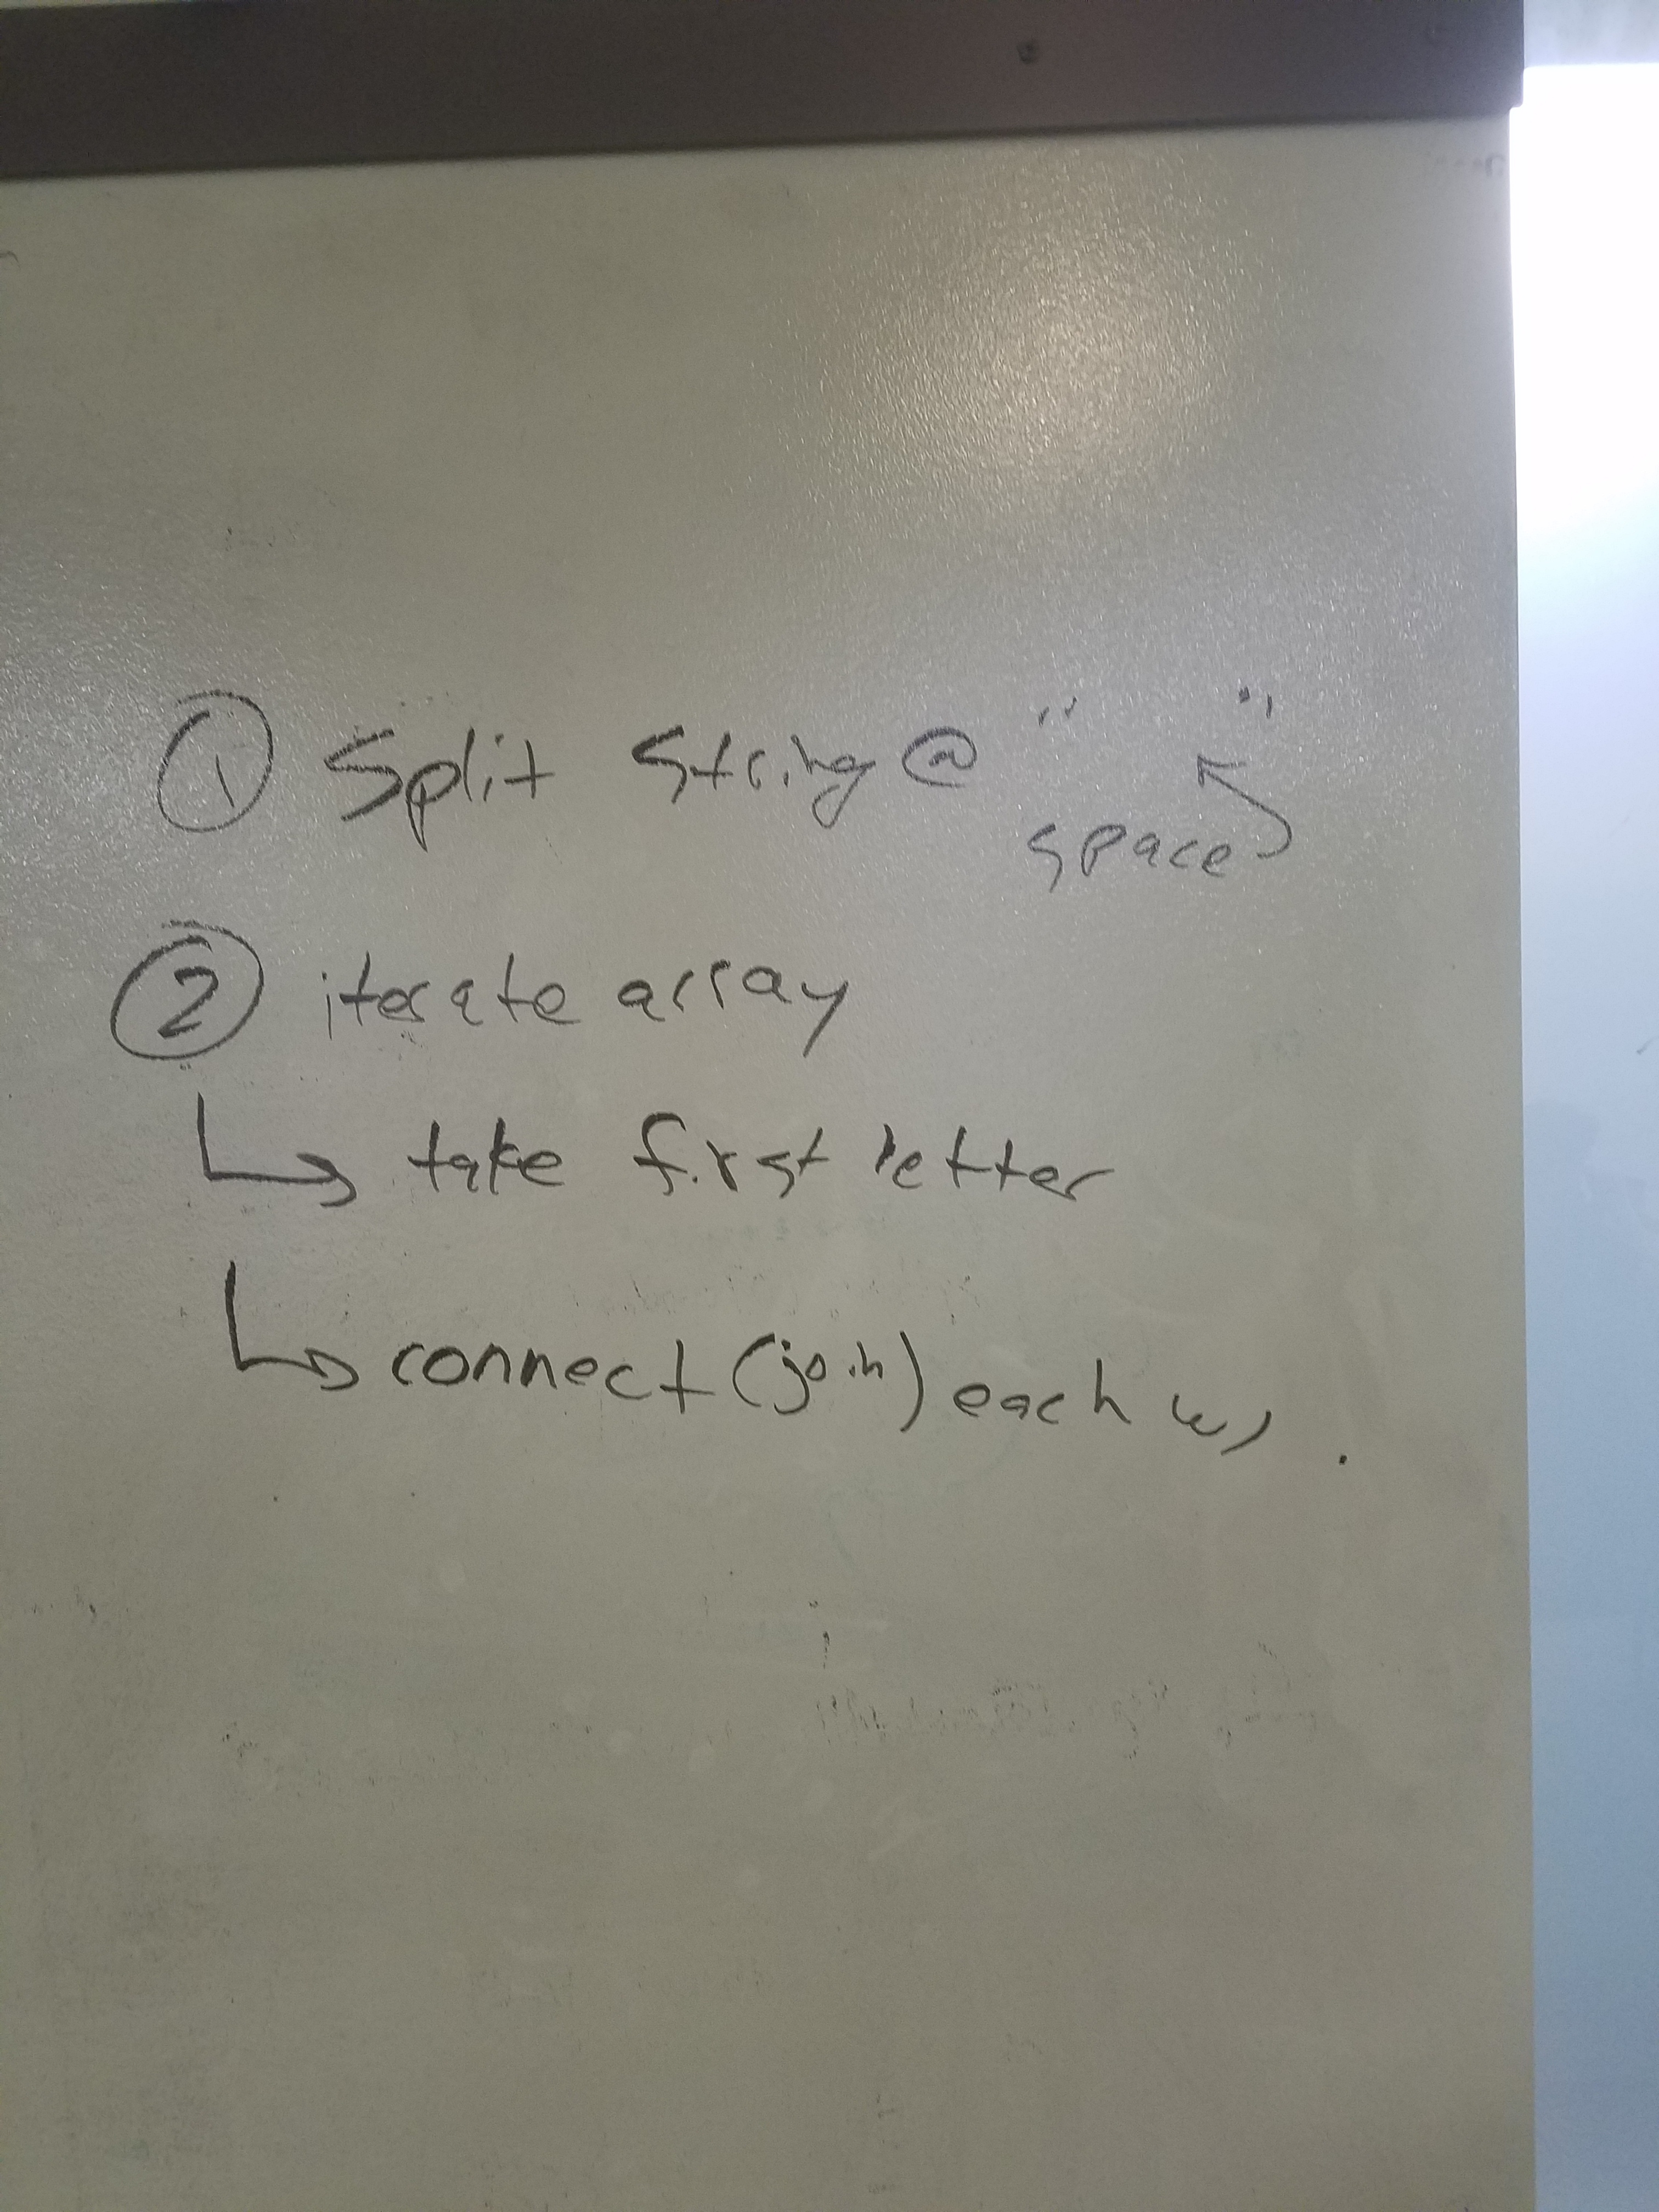 ① Split String @ " "
space
② iterate array
↳ take first letter
↳ connect (join) each w/ .